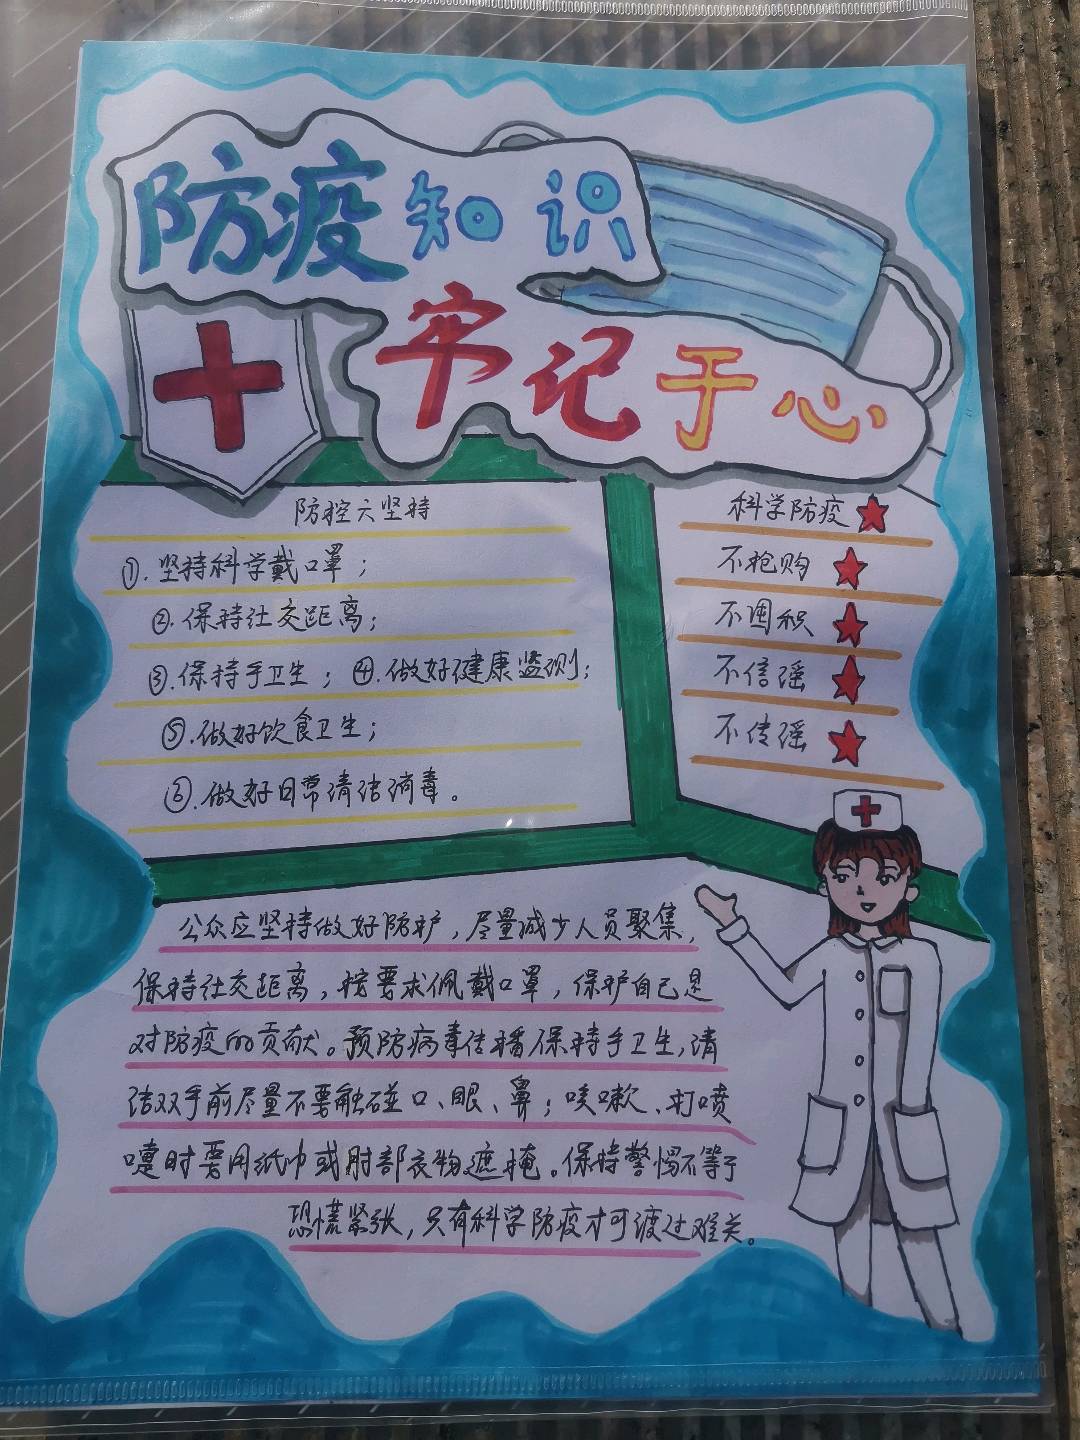 防疫知识
牢记于心
防控六坚持
①.坚持科学戴口罩；
②.保持社交距离；
③.保持手卫生；④.做好健康监测；
⑤.做好饮食卫生；
⑥.做好日常清洁消毒。
科学防疫
不抢购
不囤积
不信谣
不传谣
公众应坚持做好防护，尽量减少人员聚集，
保持社交距离，按要求佩戴口罩，保护自己是
对防疫的贡献。预防病毒传播保持手卫生，清
洁双手前尽量不要触碰口、眼、鼻；咳嗽、打喷
嚏时要用纸巾或肘部衣物遮掩。保持警惕不等于
恐慌紧张，只有科学防疫才可渡过难关。